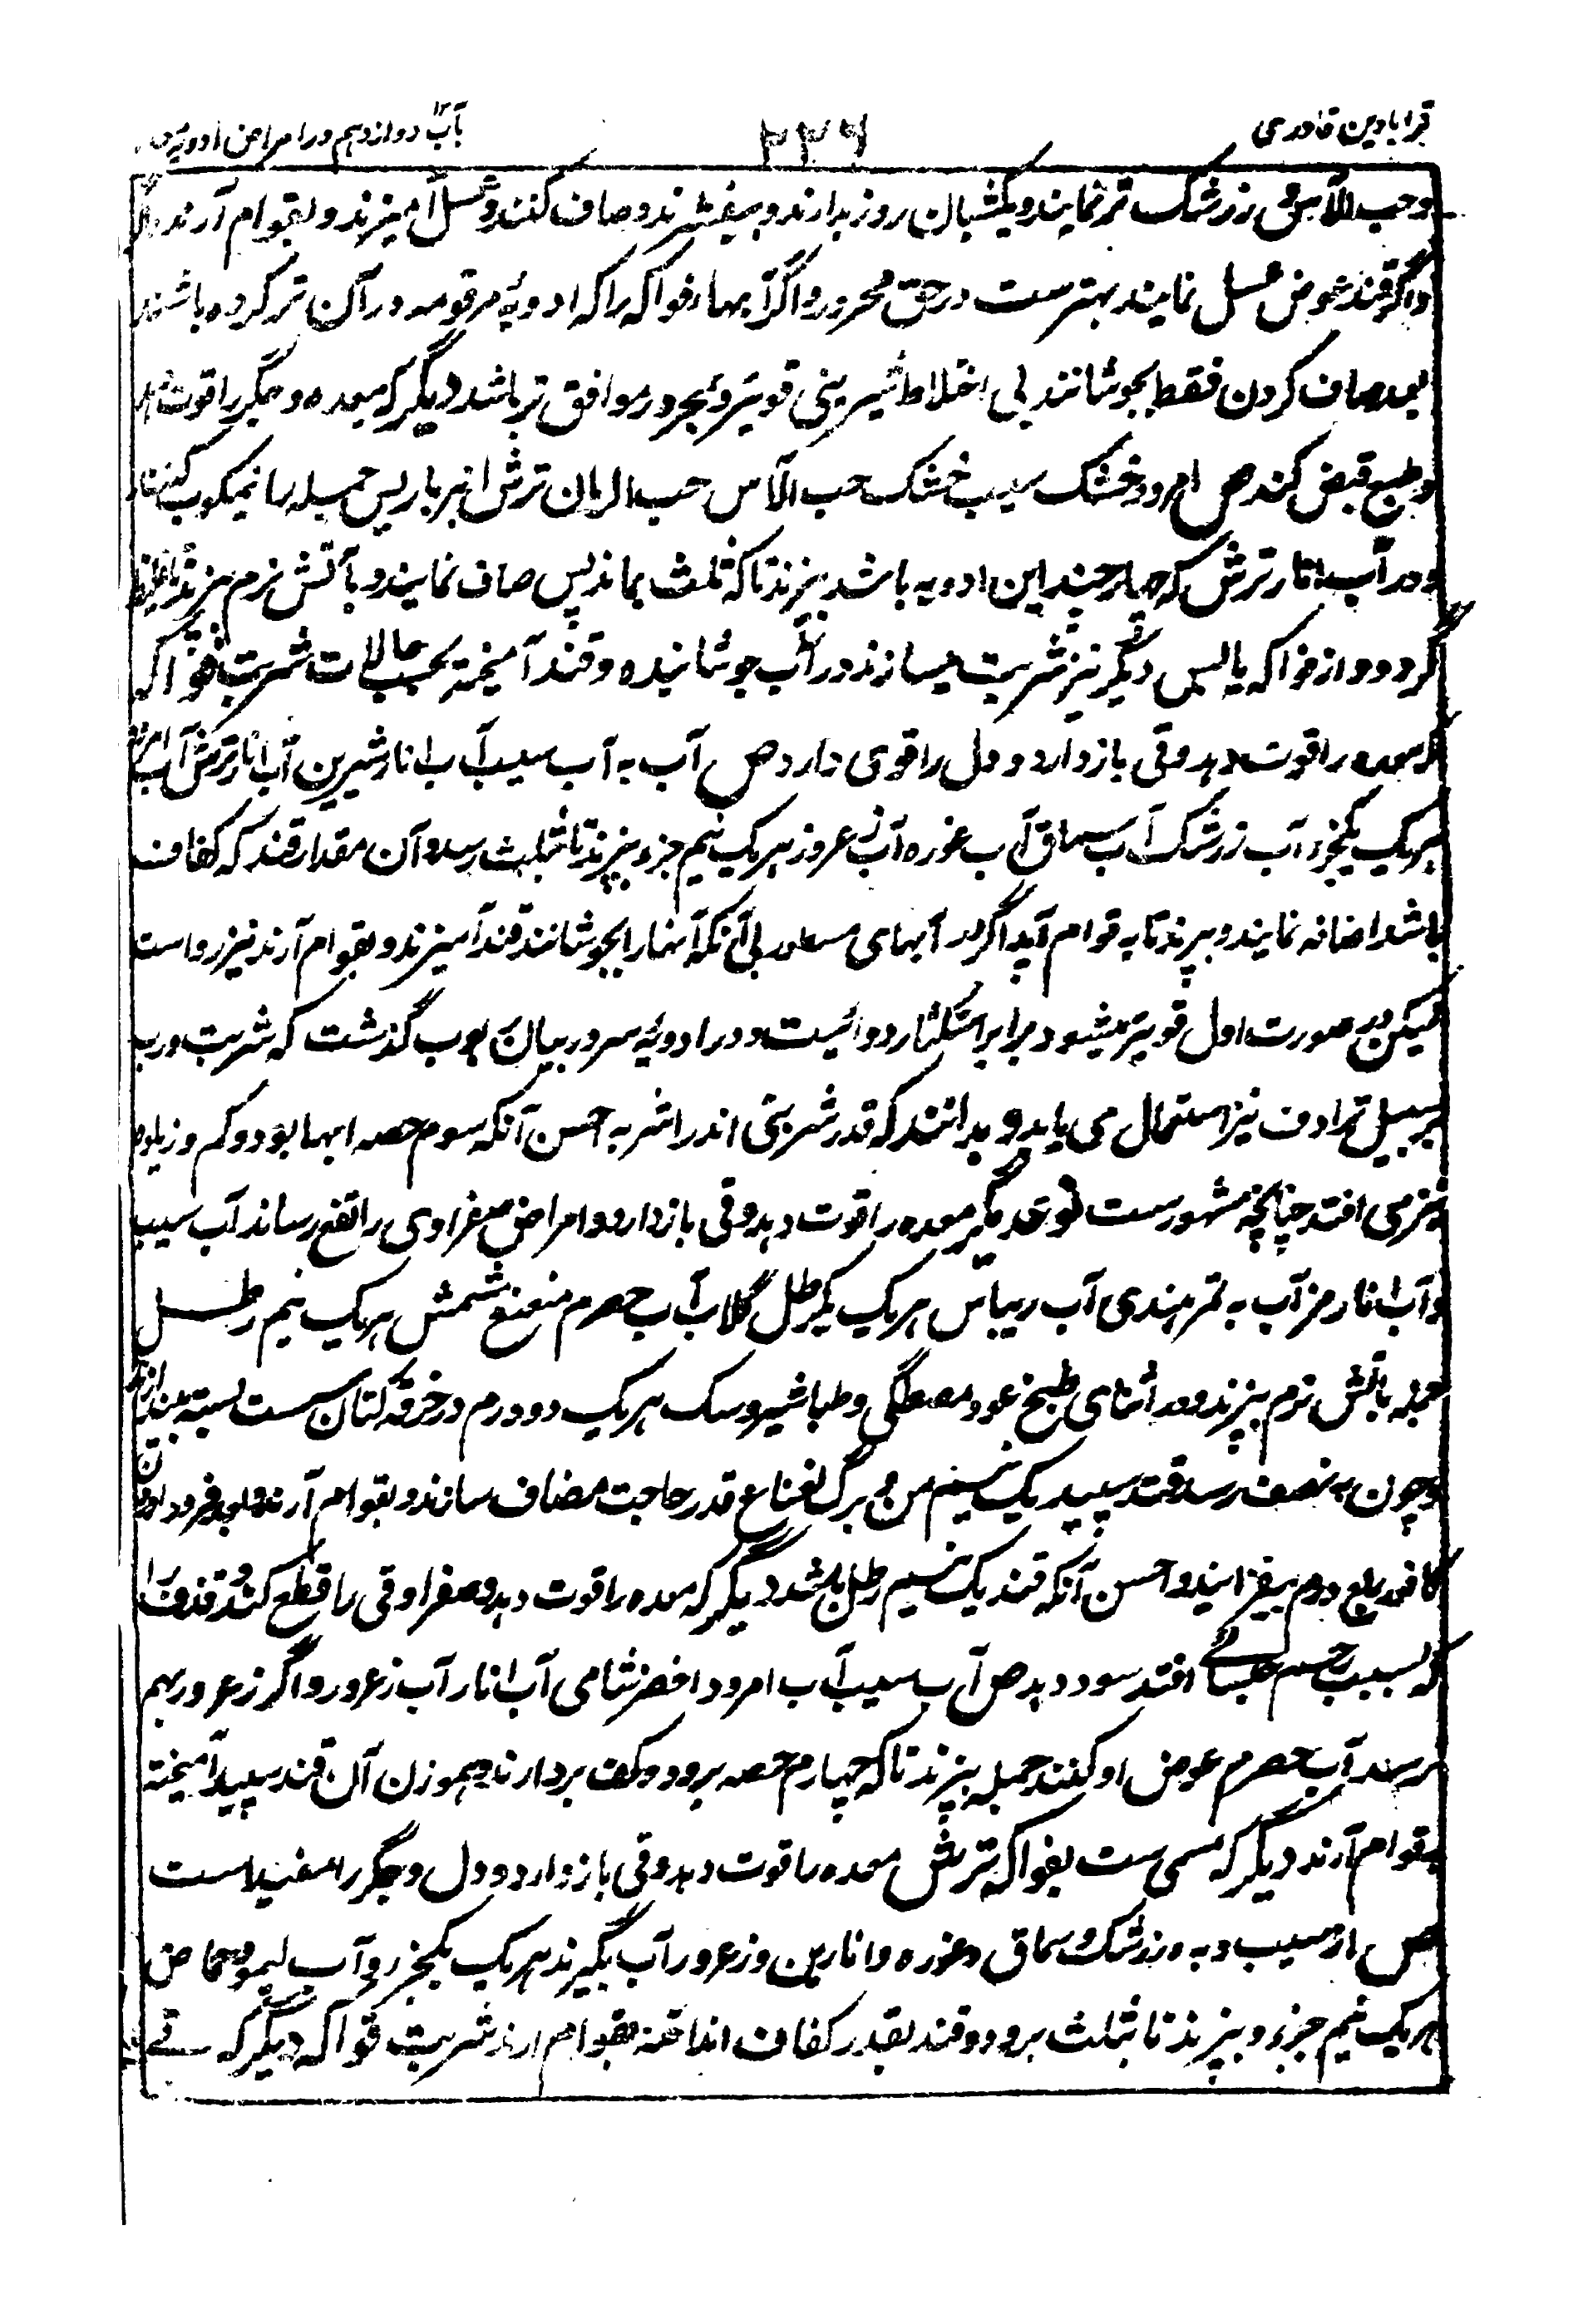 قرابادین قادری
۲۳۶
باب دوازدهم در امراض ادویه
وحب الآس زرشک تر نمایند و یکشبان روز بدارند و بیفشرند و صاف کنند و عسل آمیزند و بقوام آرند
واگر قند عوض عسل نمایند بهترست در حق محرور و اگر آبهاء فواکه را که ادویهٔ مرقومه در آن تر کرده باشند
بعد صاف کردن فقط بجوشانند بی اختلاط شیرینی قویتر و بمحرور موافق تر باشد دیگر که معده و جگر را قوت دهد
وطبع قبض کند ص امرود خشک سیب خشک حب الآس حب الرمان ترش انبرباریس جمله را نیمکوب کنند
ودر آب انار ترش که چهار چند این ادویه باشد بپزند تا که ثلث بماند پس صاف نمایند و بآتش نرم بپزند تا غلیظ
گردد و از فواکه یابس دیگر نیز شربت میسازند در آب جوشانیده و قند آمیخته بحسب حالات شربت فواکه
که معده را قوت دهد و قی باز دارد و دل را قوی دارد ص آب به آب سیب آب انار شیرین آب انار ترش آب
هریک یکجزء آب زرشک آب سماق آب غوره آب زعرور هریک نیم جزء بپزند تا بثلث رسد و آن مقدار قند که کفاف
باشد اضافه نمایند و بپزند تا به قوام آید و اگر در آبهای مسطور بی آنکه آنها را بجوشانند قند آمیزند و بقوام آرند نیز رواست
لیکن در صورت اول قویتر میشود برابر استکثار دوائیت و در ادویهٔ سر در بیان ربوب گذشت که شربت و رب
بر سبیل ترادف نیز استعمال می یابد و بدانند که قدر شربتی اندر اشربه احسن آنکه سوم حصه آبها بود و کم و زیاده
نیز می افتد چنانچه مشهورست نوع دیگر معده را قوت دهد و قی باز دارد و امراض صفراوی را نفع رساند آب سیب
و آب انار مز آب به تمر هندی آب ریباس هریک یکرطل گلاب آب حصرم منعنع مشمش هریک نیم رطل
جمله بآتش نرم بپزند و در اثنای طبخ عود مصطگی و طباشیر و سک هریک دو درم در خرقه کتان سست بسته
و چون به نصف رسد قند سپید یک نیم من و برگ نعناع قدر حاجت مضاف سازند و بقوام آرند و بعد فرود آوردن
کافور ربع درم بیفزایند و احسن آنکه قند یک نیم رطل باشد دیگر که معده را قوت دهد و صفرا و قی را قطع کند و قذف را
که بسبب افتد سود دهد ص آب سیب آب امرود اخضر شامی آب انار آب زعرور و اگر زعرور بهم
نرسد آب حصرم عوض او کنند جمله بپزند تا که چهارم حصه برود و کف بردارند و هموزن آن قند سپید آمیخته
بقوام آرند دیگر که مسمی ست بفواکه ترش معده را قوت دهد و قی باز دارد و دل و جگر را مفید است
ص از سیب و به و زرشک و سماق و غوره و انارین و زعرور آب بگیرند هریک یکجزء و آب لیمو و حماض
هریک نیم جزء و بپزند تا بثلث برود و قند بقدر کفاف انداخته بقوام آرند شربت فواکه دیگر که قے